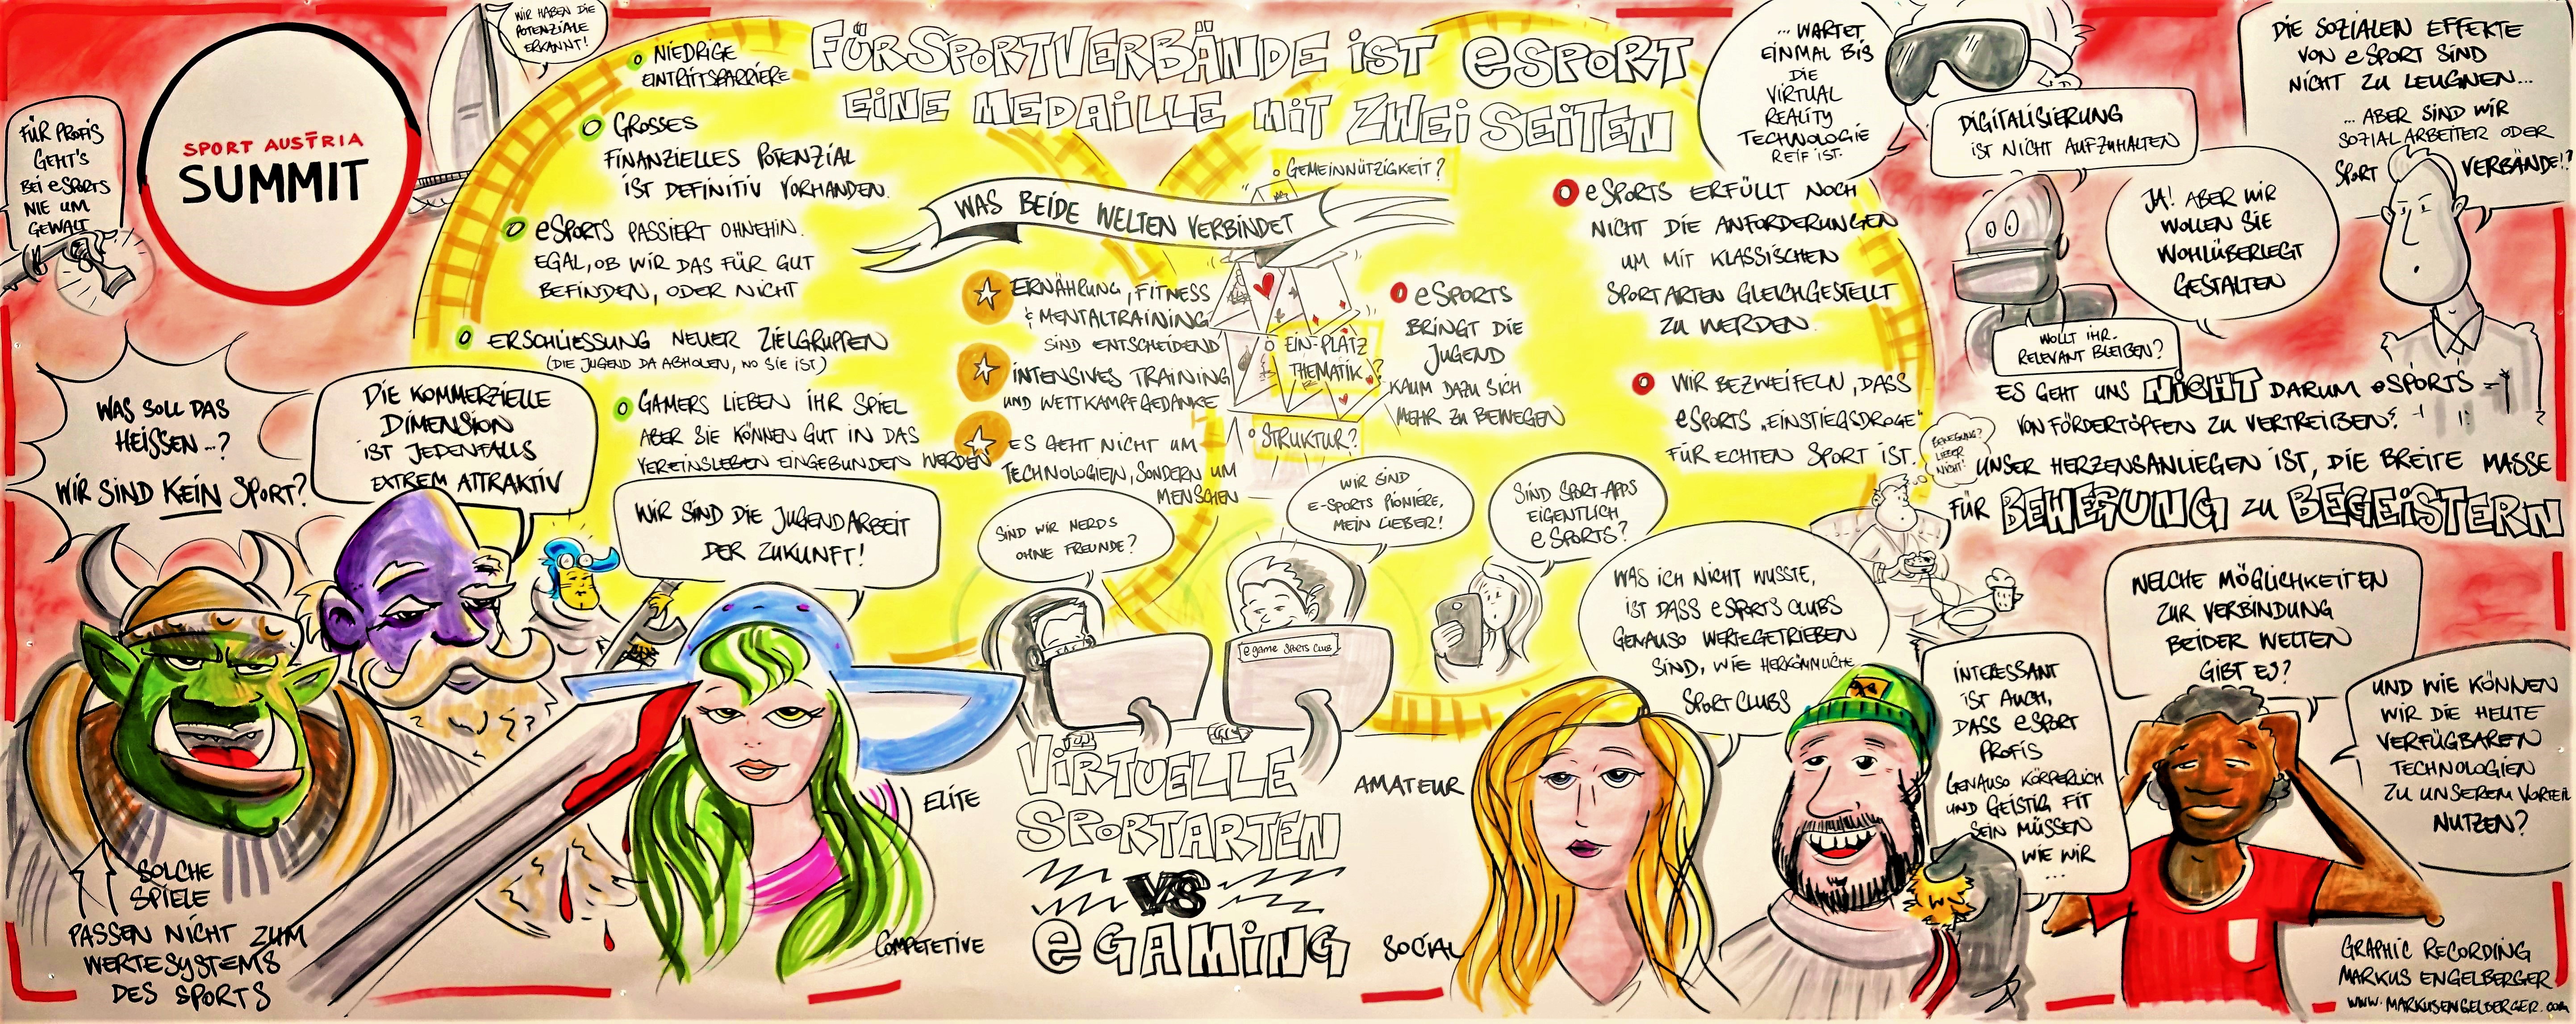 FÜR SPORTVERBÄNDE IST eSPORT
EINE MEDAILLE MIT ZWEI SEITEN
SPORT AUSTRIA
SUMMIT
WIR HABEN DIE
POTENZIALE
ERKANNT!
FÜR PROFIS
GEHT'S
BEI eSPORTS
NIE UM
GEWALT
NIEDRIGE
EINTRITTSBARRIERE
GROSSES
FINANZIELLES POTENZIAL
IST DEFINITIV VORHANDEN.
eSPORTS PASSIERT OHNEHIN.
EGAL, OB WIR DAS FÜR GUT
BEFINDEN, ODER NICHT
ERSCHLIESSUNG NEUER ZIELGRUPPEN
(DIE JUGEND DA ABHOLEN, WO SIE IST)
GAMERS LIEBEN IHR SPIEL
ABER SIE KÖNNEN GUT IN DAS
VEREINSLEBEN EINGEBUNDEN WERDEN
WAS BEIDE WELTEN VERBINDET
ERNÄHRUNG, FITNESS
& MENTALTRAINING
SIND ENTSCHEIDEND
INTENSIVES TRAINING
UND WETTKAMPFGEDANKE
ES GEHT NICHT UM
TECHNOLOGIEN, SONDERN UM
MENSCHEN
GEMEINNÜTZIGKEIT?
EIN-PLATZ
THEMATIK?
STRUKTUR?
eSPORTS
BRINGT DIE
JUGEND
KAUM DAZU SICH
MEHR ZU BEWEGEN
eSPORTS ERFÜLLT NOCH
NICHT DIE ANFORDERUNGEN
UM MIT KLASSISCHEN
SPORTARTEN GLEICHGESTELLT
ZU WERDEN.
WIR BEZWEIFELN, DASS
eSPORTS „EINSTIEGSDROGE"
FÜR ECHTEN SPORT IST.
... WARTET
EINMAL BIS
DIE
VIRTUAL
REALITY
TECHNOLOGIE
REIF IST.
DIGITALISIERUNG
IST NICHT AUFZUHALTEN
DIE SOZIALEN EFFEKTE
VON eSPORT SIND
NICHT ZU LEUGNEN...
... ABER SIND WIR
SOZIALARBEITER ODER
SPORT VERBÄNDE!?
JA! ABER WIR
WOLLEN SIE
WOHLÜBERLEGT
GESTALTEN
WOLLT IHR
RELEVANT BLEIBEN?
ES GEHT UNS NICHT DARUM eSPORTS
VON FÖRDERTÖPFEN ZU VERTREIBEN!
UNSER HERZENSANLIEGEN IST, DIE BREITE MASSE
FÜR BEWEGUNG ZU BEGEISTERN
BEWEGUNG?
LIEBER
NICHT!
WAS SOLL DAS
HEISSEN...?
WIR SIND KEIN SPORT?
DIE KOMMERZIELLE
DIMENSION
IST JEDENFALLS
EXTREM ATTRAKTIV
WIR SIND DIE JUGENDARBEIT
DER ZUKUNFT!
SIND WIR NERDS
OHNE FREUNDE?
WIR SIND
E-SPORTS PIONIERE,
MEIN LIEBER!
SIND SPORT-APPS
EIGENTLICH
eSPORTS?
e game SPORTS CLUB
WAS ICH NICHT WUSSTE,
IST DASS eSPORTS CLUBS
GENAUSO WERTEGETRIEBEN
SIND, WIE HERKÖMMLICHE
SPORTCLUBS
INTERESSANT
IST AUCH,
DASS eSPORT
PROFIS
GENAUSO KÖRPERLICH
UND GEISTIG FIT
SEIN MÜSSEN
WIE WIR
...
WELCHE MÖGLICHKEITEN
ZUR VERBINDUNG
BEIDER WELTEN
GIBT ES?
UND WIE KÖNNEN
WIR DIE HEUTE
VERFÜGBAREN
TECHNOLOGIEN
ZU UNSEREM VORTEIL
NUTZEN?
SOLCHE
SPIELE
PASSEN NICHT ZUM
WERTESYSTEMS
DES SPORTS
ELITE
COMPETETIVE
VIRTUELLE
SPORTARTEN
VS
eGAMING
AMATEUR
SOCIAL
GRAPHIC RECORDING
MARKUS ENGELBERGER
WWW.MARKUSENGELBERGER.COM